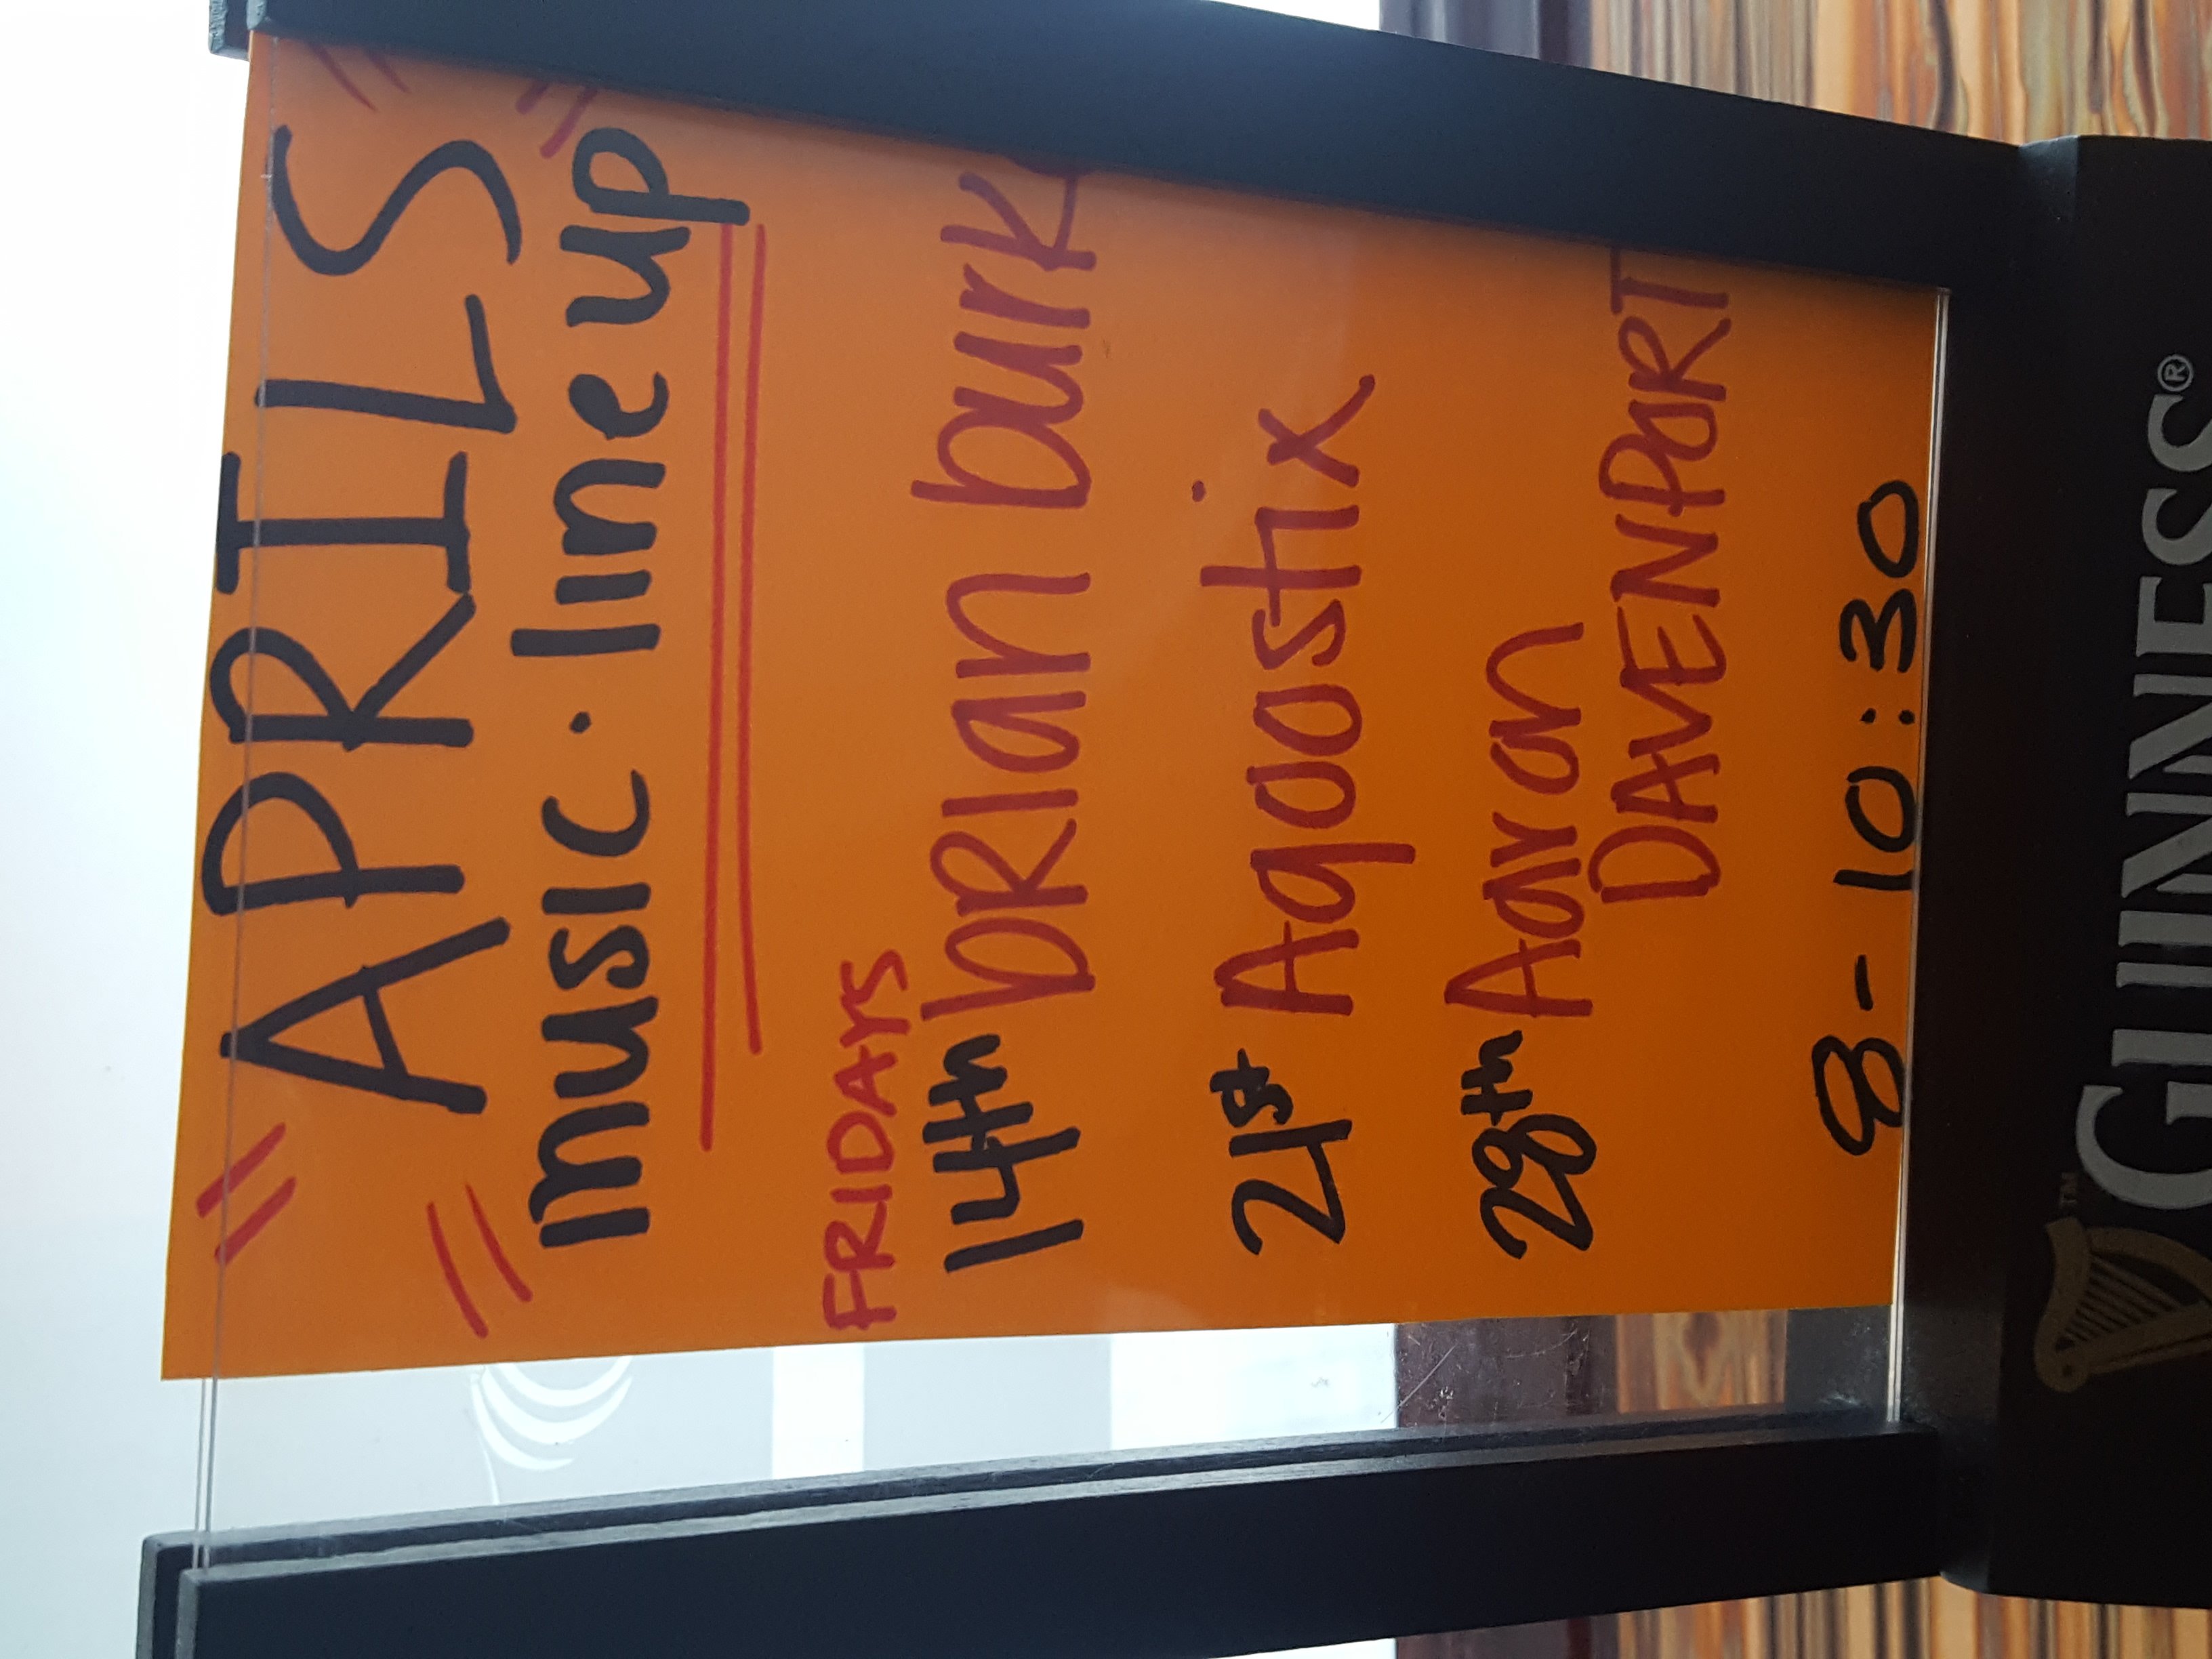 APRILS
music · line up
FRIDAYS
14th bRIan burk
21st Aqoostix
28th Aaron
DAVENPORT
8-10:30
GUINNESS®
™